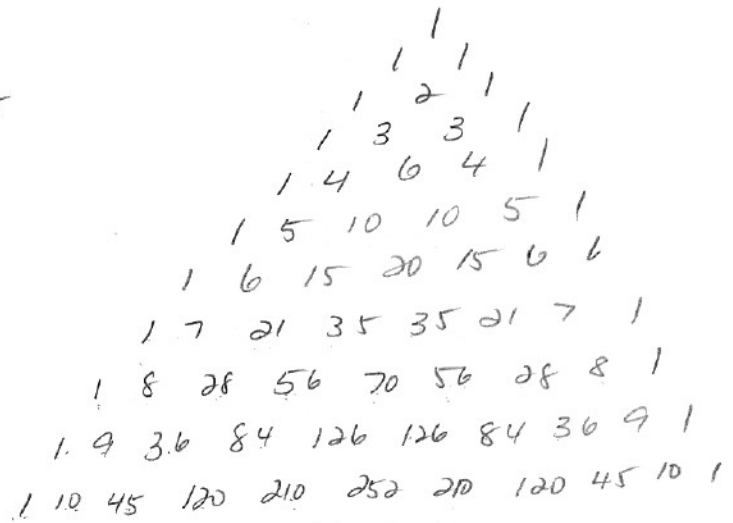 1
1 1
1 2 1
1 3 3 1
1 4 6 4 1
1 5 10 10 5 1
1 6 15 20 15 6 1
1 7 21 35 35 21 7 1
1 8 28 56 70 56 28 8 1
1 9 36 84 126 126 84 36 9 1
1 10 45 120 210 252 210 120 45 10 1